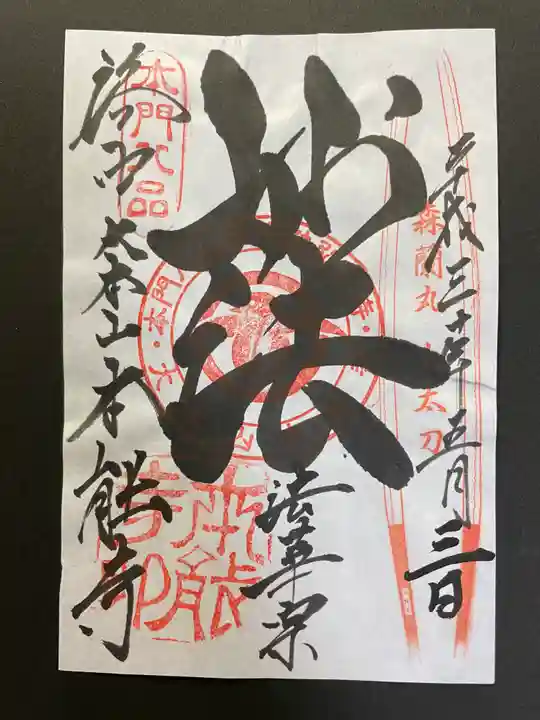 平成三十年五月三日
森蘭丸 太刀
妙法
法華宗
洛中 大本山本能寺
本門八品
本能寺印